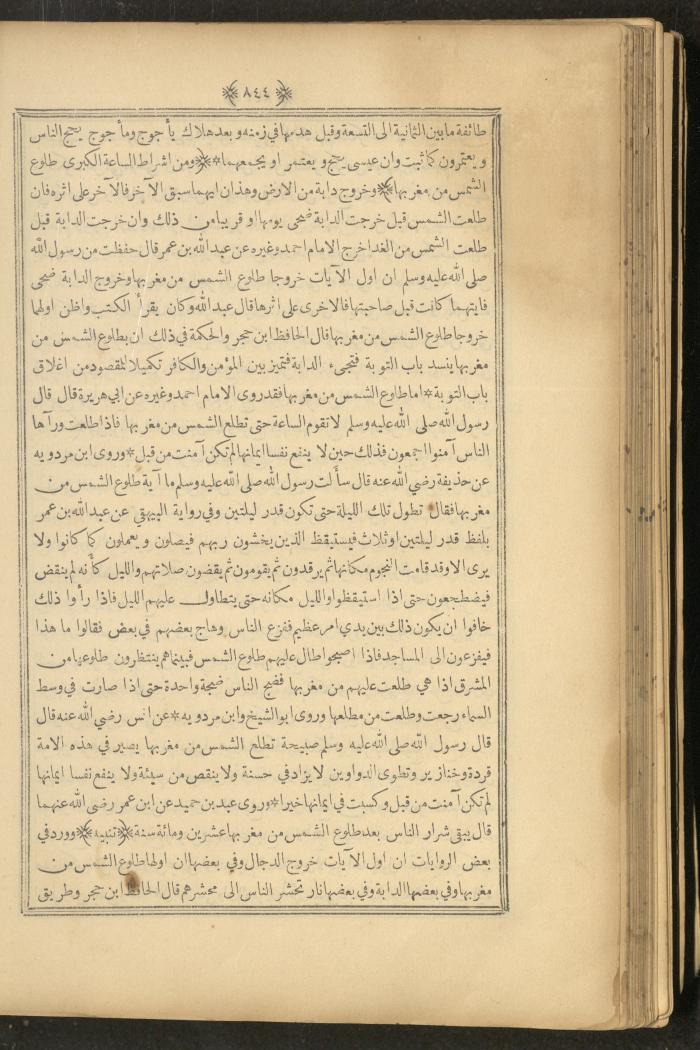 ﴿ ٨٤٤ ﴾
طائفة مابين الثمانية الى التسعة وقبل هدمها في زمنه وبعد هلاك يأجوج ومأجوج يحج الناس
ويعتمرون كما ثبت وان عيسى يحج ويعتمر او يجمعهما * ﴿ ومن اشراط الساعة الكبرى طلوع
الشمس من مغربها ﴾ وخروج دابة من الارض وهذان ايهما سبق الآخر فالآخر على اثره فان
طلعت الشمس قبل خرجت الدابة ضحى يومها او قريبا من ذلك وان خرجت الدابة قبل
طلعت الشمس من الغد اخرج الامام احمد وغيره عن عبد الله بن عمر قال حفظت من رسول الله
صلى الله عليه وسلم ان اول الآيات خروجا طلوع الشمس من مغربها وخروج الدابة ضحى
فايتهما كانت قبل صاحبتها فالاخرى على اثرها قال عبد الله وكان يقرأ الكتب واظن اولها
خروجا طلوع الشمس من مغربها قال الحافظ ابن حجر والحكمة في ذلك ان بطلوع الشمس من
مغربها ينسد باب التوبة فتجيء الدابة فتميز بين المؤمن والكافر تكميلا للمقصود من اغلاق
باب التوبة * اما طلوع الشمس من مغربها فقد روى الامام احمد وغيره عن ابي هريرة قال قال
رسول الله صلى الله عليه وسلم لا تقوم الساعة حتى تطلع الشمس من مغربها فاذا طلعت ورآها
الناس آمنوا اجمعون فذلك حين لا ينفع نفسا ايمانها لم تكن آمنت من قبل * وروى ابن مردويه
عن حذيفة رضي الله عنه قال سألت رسول الله صلى الله عليه وسلم ما آية طلوع الشمس من
مغربها فقال تطول تلك الليلة حتى تكون قدر ليلتين وفي رواية البيهقي عن عبد الله بن عمر
بلفظ قدر ليلتين او ثلاث فيستيقظ الذين يخشون ربهم فيصلون ويعملون كما كانوا ولا
يرى الا وقد قامت النجوم مكانها ثم يرقدون ثم يقومون ثم يقضون صلاتهم والليل كأنه لم ينقض
فيضطجعون حتى اذا استيقظوا والليل مكانه حتى يتطاول عليهم الليل فاذا رأوا ذلك
خافوا ان يكون ذلك بين يدي امر عظيم ففزع الناس وهاج بعضهم في بعض فقالوا ما هذا
فيفزعون الى المساجد فاذا اصبحوا طال عليهم طلوع الشمس فبينما هم ينتظرون طلوعها من
المشرق اذا هي طلعت عليهم من مغربها فضج الناس ضجة واحدة حتى اذا صارت في وسط
السماء رجعت وطلعت من مطلعها وروى ابو الشيخ وابن مردويه * عن انس رضي الله عنه قال
قال رسول الله صلى الله عليه وسلم صبيحة تطلع الشمس من مغربها يصير في هذه الامة
قردة وخنازير وتطوى الدواوين لا يزاد في حسنة ولا ينقص من سيئة ولا ينفع نفسا ايمانها
لم تكن آمنت من قبل وكسبت في ايمانها خيرا * وروى عبد بن حميد عن ابن عمر رضي الله عنهما
قال يبقى شرار الناس بعد طلوع الشمس من مغربها عشرين ومائة سنة * ﴿ تنبيه ﴾ * وورد في
بعض الروايات ان اول الآيات خروج الدجال وفي بعضها ان اولها طلوع الشمس من
مغربها وفي بعضها الدابة وفي بعضها نار تحشر الناس الى محشرهم قال الحافظ ابن حجر وطريق